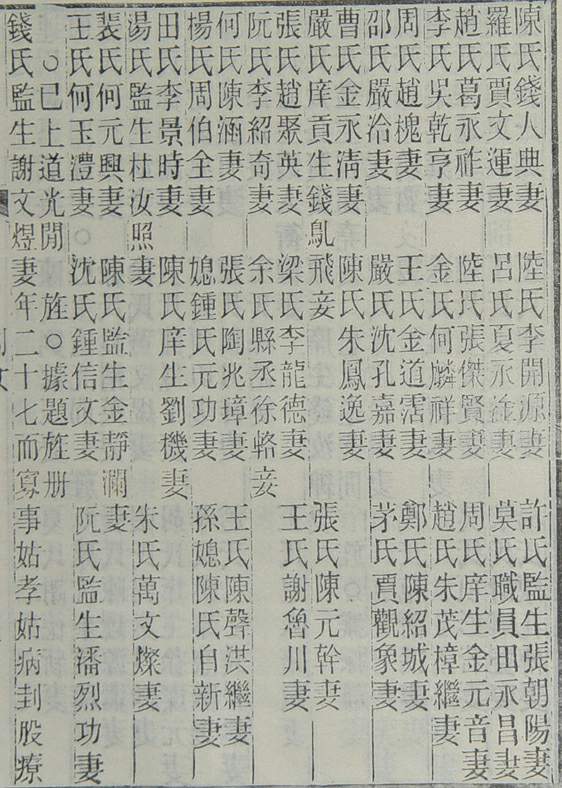 陳氏錢人典妻 陸氏李開源妻 許氏監生張朝陽妻
羅氏賈文運妻 呂氏夏永銓妻 莫氏職員田永昌妻
趙氏葛永祚妻 陸氏張傑賢妻 周氏庠生金元音妻
李氏吳乾亨妻 金氏何麟祥妻 趙氏朱茂樟繼妻
周氏趙槐妻 王氏金道霑妻 鄭氏陳紹城妻
邵氏嚴洽妻 嚴氏沈孔嘉妻 茅氏賈觀象妻
曹氏金永淸妻 陳氏朱鳳逸妻
嚴氏庠貢生錢鳧飛妾 張氏陳元幹妻
張氏趙聚英妻 梁氏李龍德妻 王氏謝魯川妻
阮氏李紹奇妻 余氏縣丞徐輅妾
何氏陳涵妻 張氏陶兆璋妻 王氏陳聲洪繼妻
楊氏周伯全妻 媳鍾氏元功妻 孫媳陳氏自新妻
田氏李景時妻 陳氏庠生劉機妻
湯氏監生杜汝照妻 朱氏萬文燦妻
裴氏何元興妻 陳氏監生金靜瀾妻
王氏何玉澧妻○沈氏鍾信文妻 阮氏監生潘烈功妻
○已上道光閒旌○據題旌册
錢氏監生謝文煜妻年二十七而寡事姑孝姑病刲股療